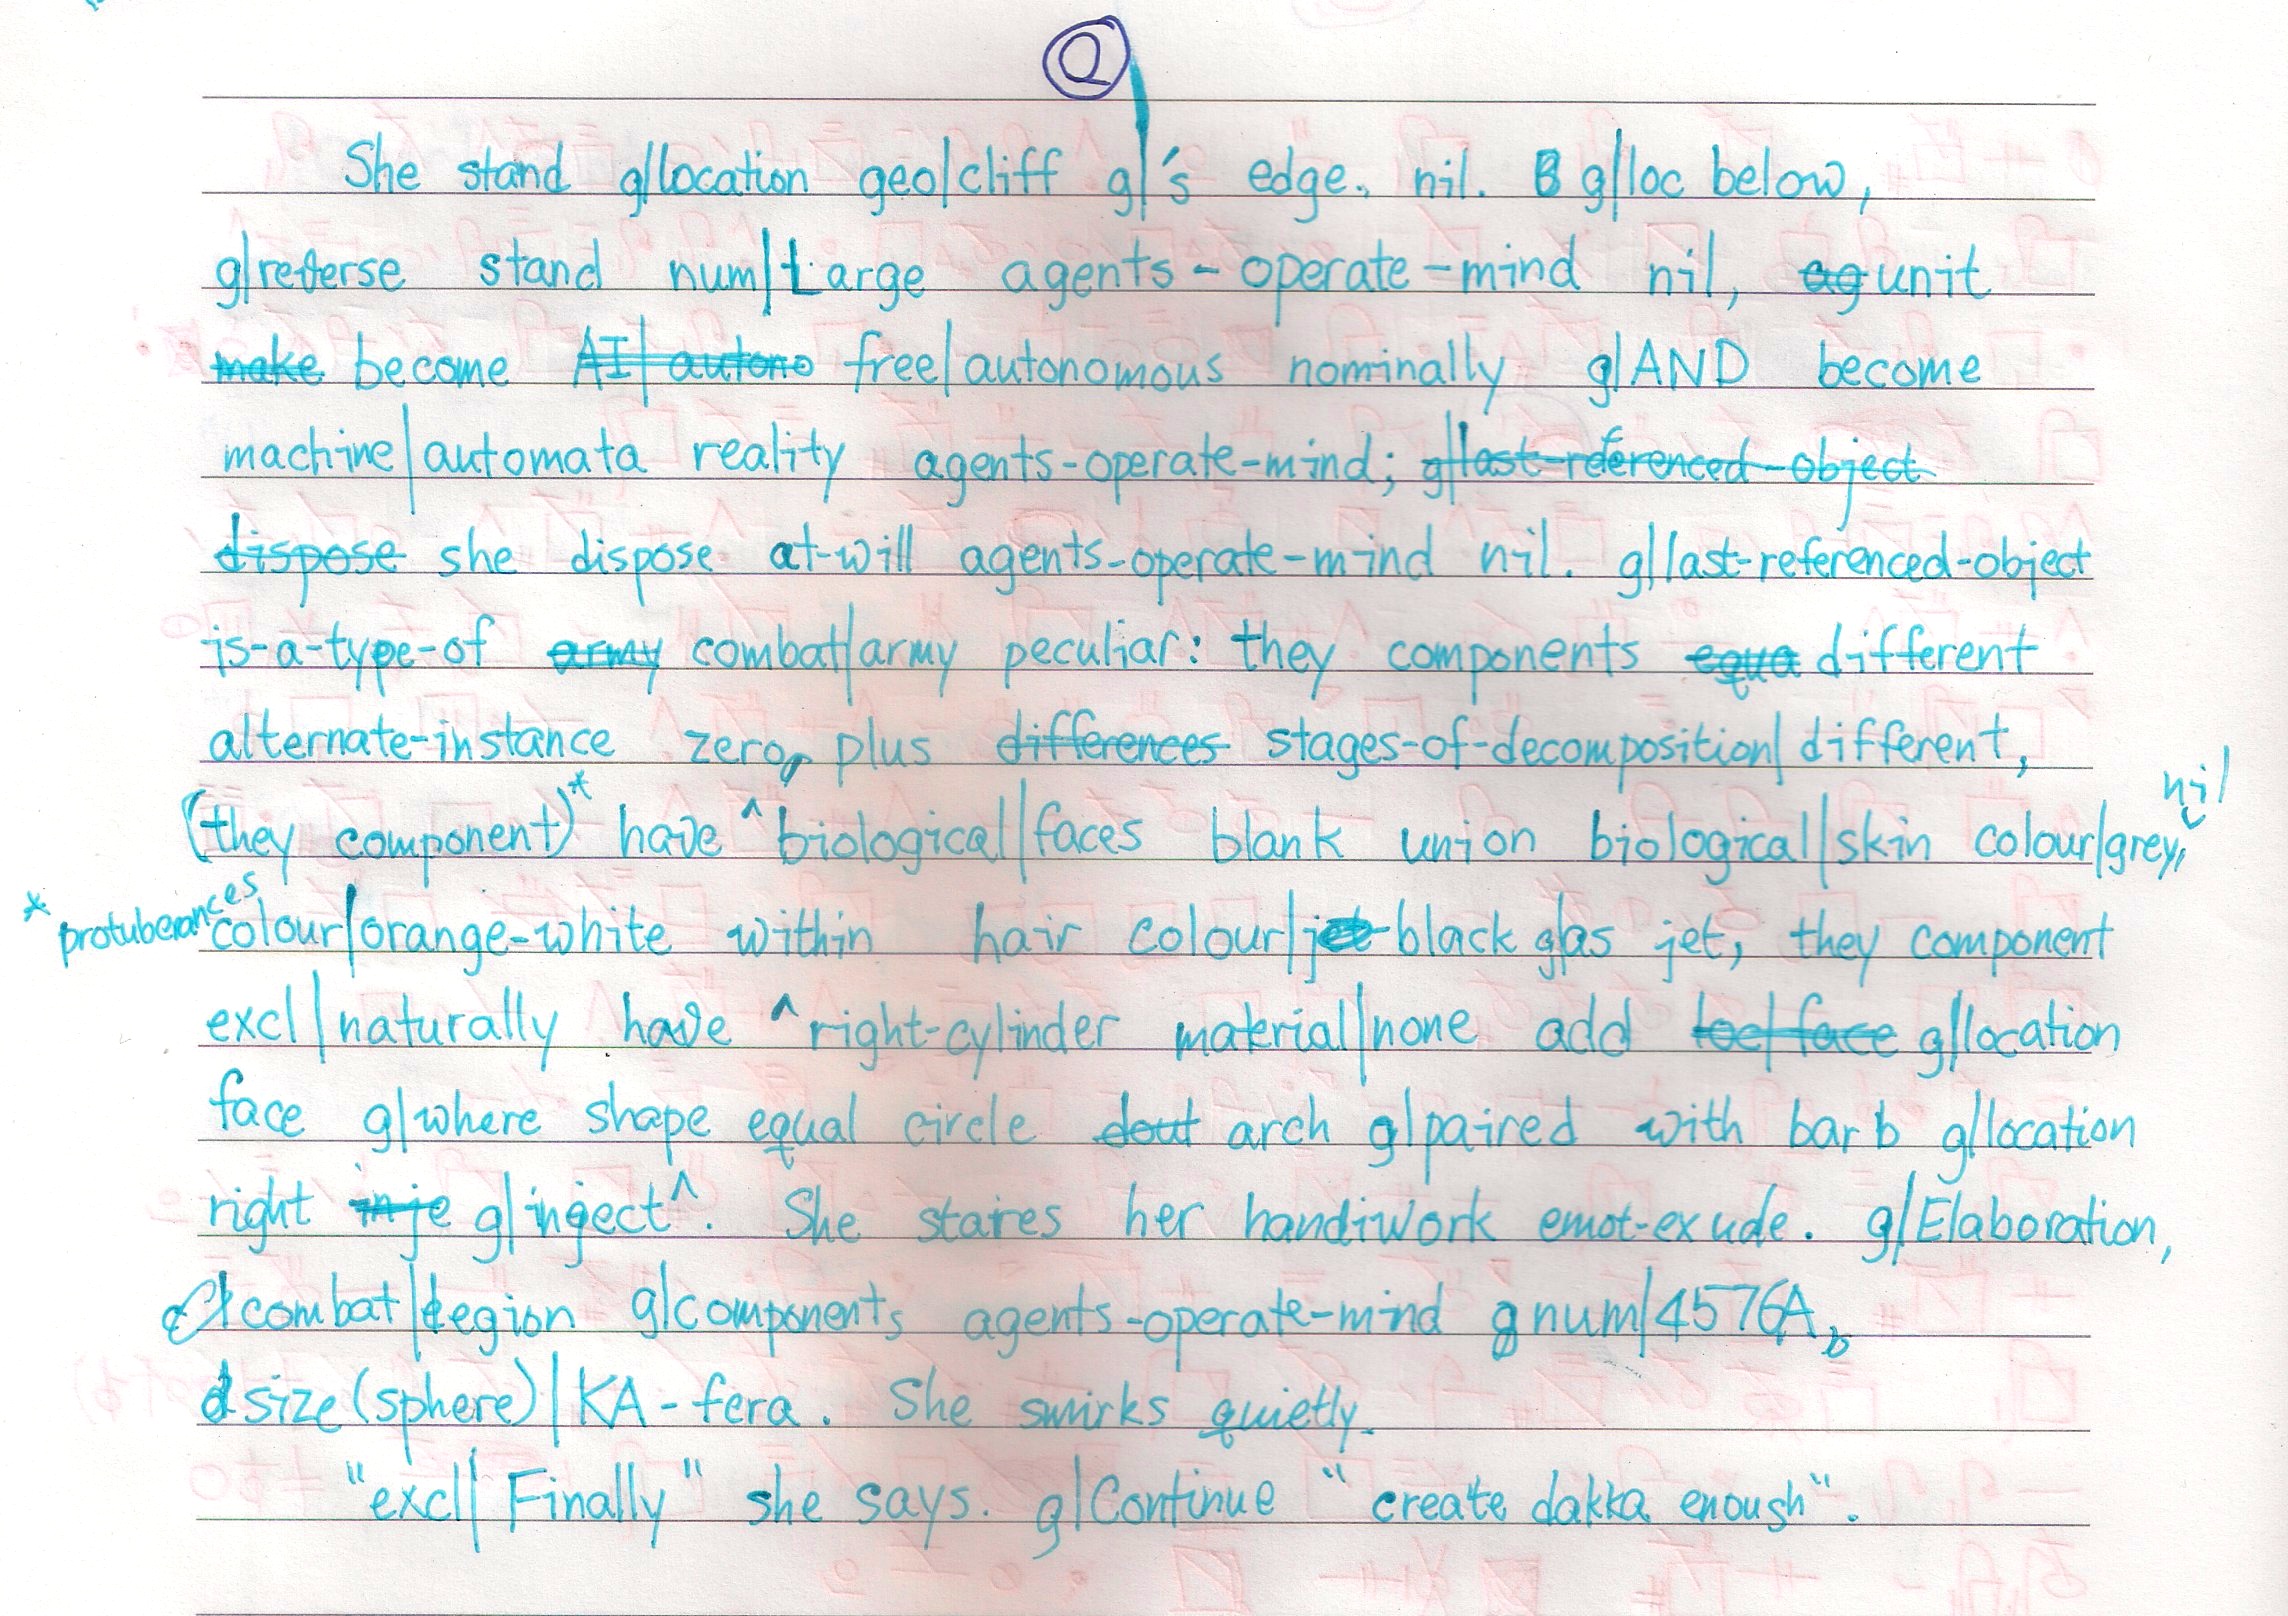 Q
She stand g|location geo|cliff g|'s edge. nil. g|loc below,
g|reverse stand num|Large agents-operate-mind nil, ag unit
make become AI|autono free|autonomous nominally g|AND become
machine|automata reality agents-operate-mind; g|last-referenced-object
dispose she dispose at-will agents-operate-mind nil. g|last-referenced-object
is-a-type-of army combat|army peculiar: they components equa different
alternate-instance zero, plus differences stages-of-decomposition|different,
nil
(they component)* have ^ biological|faces blank union biological|skin colour|grey,
* protuberances
colour|orange-white within hair colour|jet-black g|as jet, they component
excl|naturally have ^ right-cylinder material|none add loc|face g|location
face g|where shape equal circle dout arch g|paired with barb g|location
right inje g|inject ^. She stares her handiwork emot-exude. g|Elaboration,
combat|legion g|components agents-operate-mind num|4576A,
size(sphere)|KA-fera. She smirks quietly.
"excl|Finally" she says. g|Continue "create dakka enough".